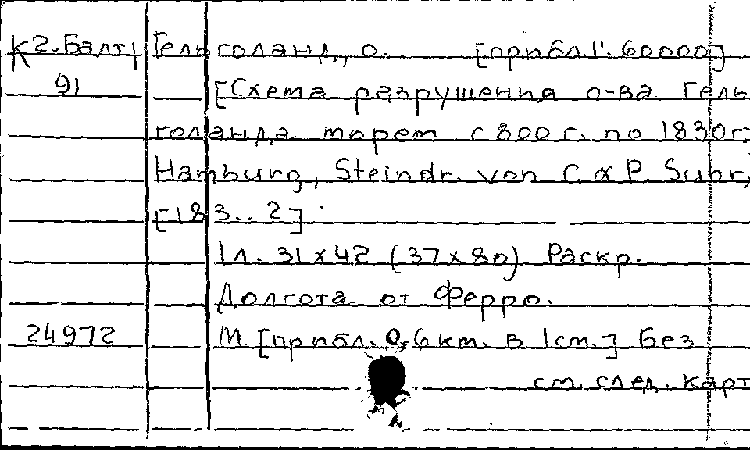 К2.Балт Гельголанд, о. [прибл. 1:60000]
91 [Схема разрушения о-ва Гель-
голанда морем с 800 г. по 1830г.]
Hamburg, Steindr. von C. & P. Suhr,
[183..?]
1 л. 31x42 (37x80) Раскр.
Долгота от Ферро.
24972 М. [прибл. 0,6 км. в 1см.] Без
см. след. карт